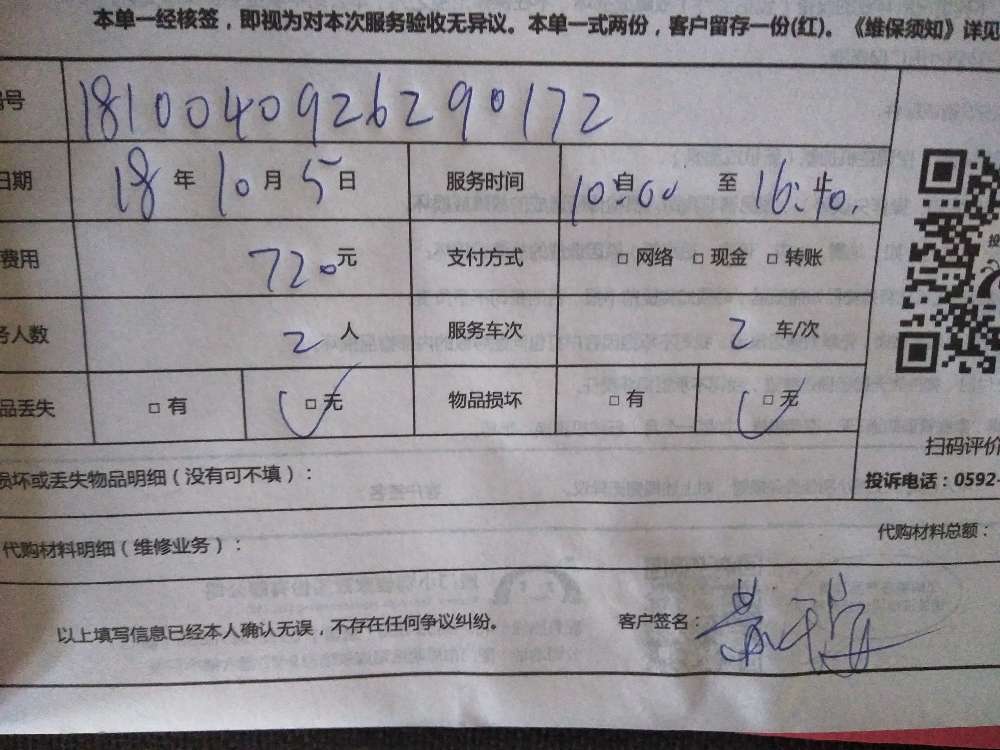 本单一经核签，即视为对本次服务验收无异议。本单一式两份，客户留存一份(红)。《维保须知》详见
号 1810040926290172
日期 18 年 10 月 5 日 服务时间 10:00 自 至 16:40.
费用 720 元 支付方式 □ 网络 □ 现金 □ 转账
务人数 2 人 服务车次 2 车/次
品丢失 □ 有 □ 无 物品损坏 □ 有 □ 无
扫码评价
损坏或丢失物品明细（没有可不填）：
投诉电话：0592-
代购材料明细（维修业务）：
代购材料总额：
以上填写信息已经本人确认无误，不存在任何争议纠纷。 客户签名：